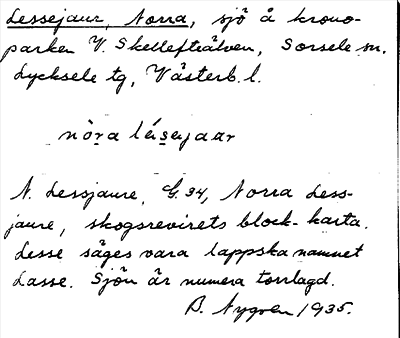 Lessejaur, Norra, sjö å krono-
parken V. Skellefteälven, Sorsele sn.
Lycksele tg, Västerb. l.
nòra lésejaar
N. Lessjaure, G. 34, Norra Less-
jaure, skogsrevirets block-karta.
Lesse säges vara lappska namnet
Lasse. Sjön är numera torrlagd.
B. Nygren 1935.